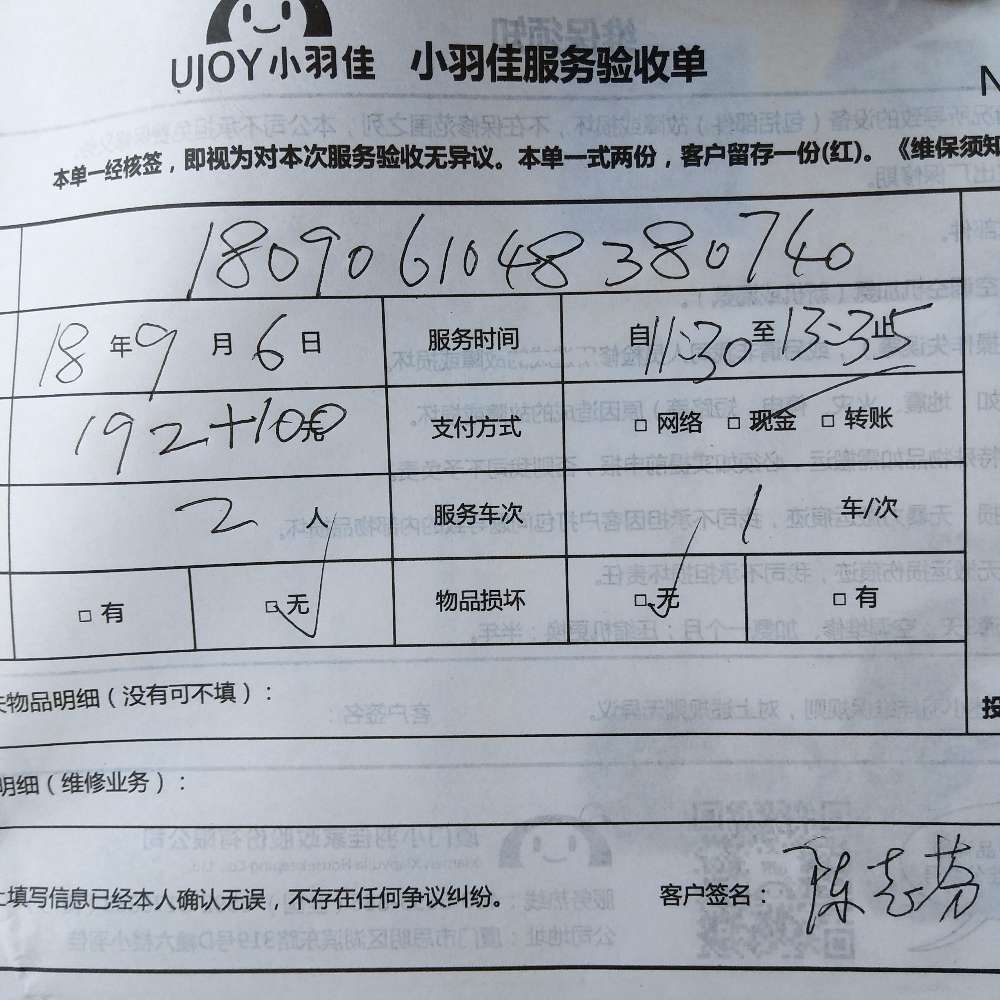 UJOY小羽佳 小羽佳服务验收单
N
本单一经核签，即视为对本次服务验收无异议。本单一式两份，客户留存一份(红)。《维保须知
1809061048380740
18年9月6日 服务时间 自11:30至13:35止
192+100元 支付方式 □ 网络 □ 现金 □ 转账
2人 服务车次 1 车/次
□ 有 □ 无 物品损坏 □ 无 □ 有
物品明细（没有可不填）：
投
明细（维修业务）：
上填写信息已经本人确认无误，不存在任何争议纠纷。 客户签名：陈志芬